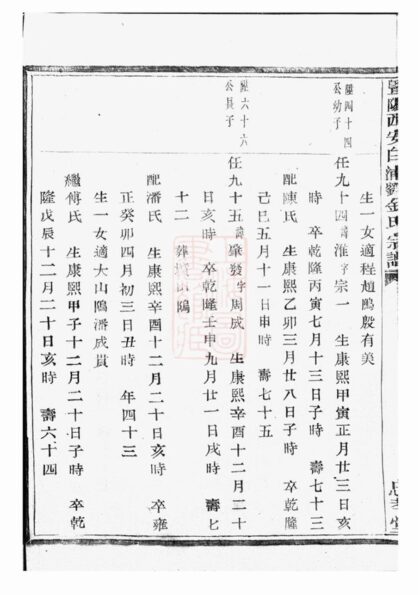 暨陽西安白浦劉金氏宗譜
生一女適程趙鳴殷有美
隆四十四
公幼子
任九十四諱淮字宗一 生康熙甲寅正月廿三日亥
時 卒乾隆丙寅七月十三日子時 壽七十三
配陳氏 生康熙乙卯三月廿八日子時 卒乾隆
己巳五月十一日申時 壽七十五
六十六
公長子
任九十五諱肇發字周成 生康熙辛酉十二月二十
日亥時 卒乾隆壬申九月廿一日戌時 壽七
十二 葬
配潘氏 生康熙辛酉十二月二十日亥時 卒雍
正癸卯四月初三日丑時 年四十三
生一女適大山塢潘成貰
繼傅氏 生康熙甲子十二月二十日子時 卒乾
隆戊辰十二月二十日亥時 壽六十四